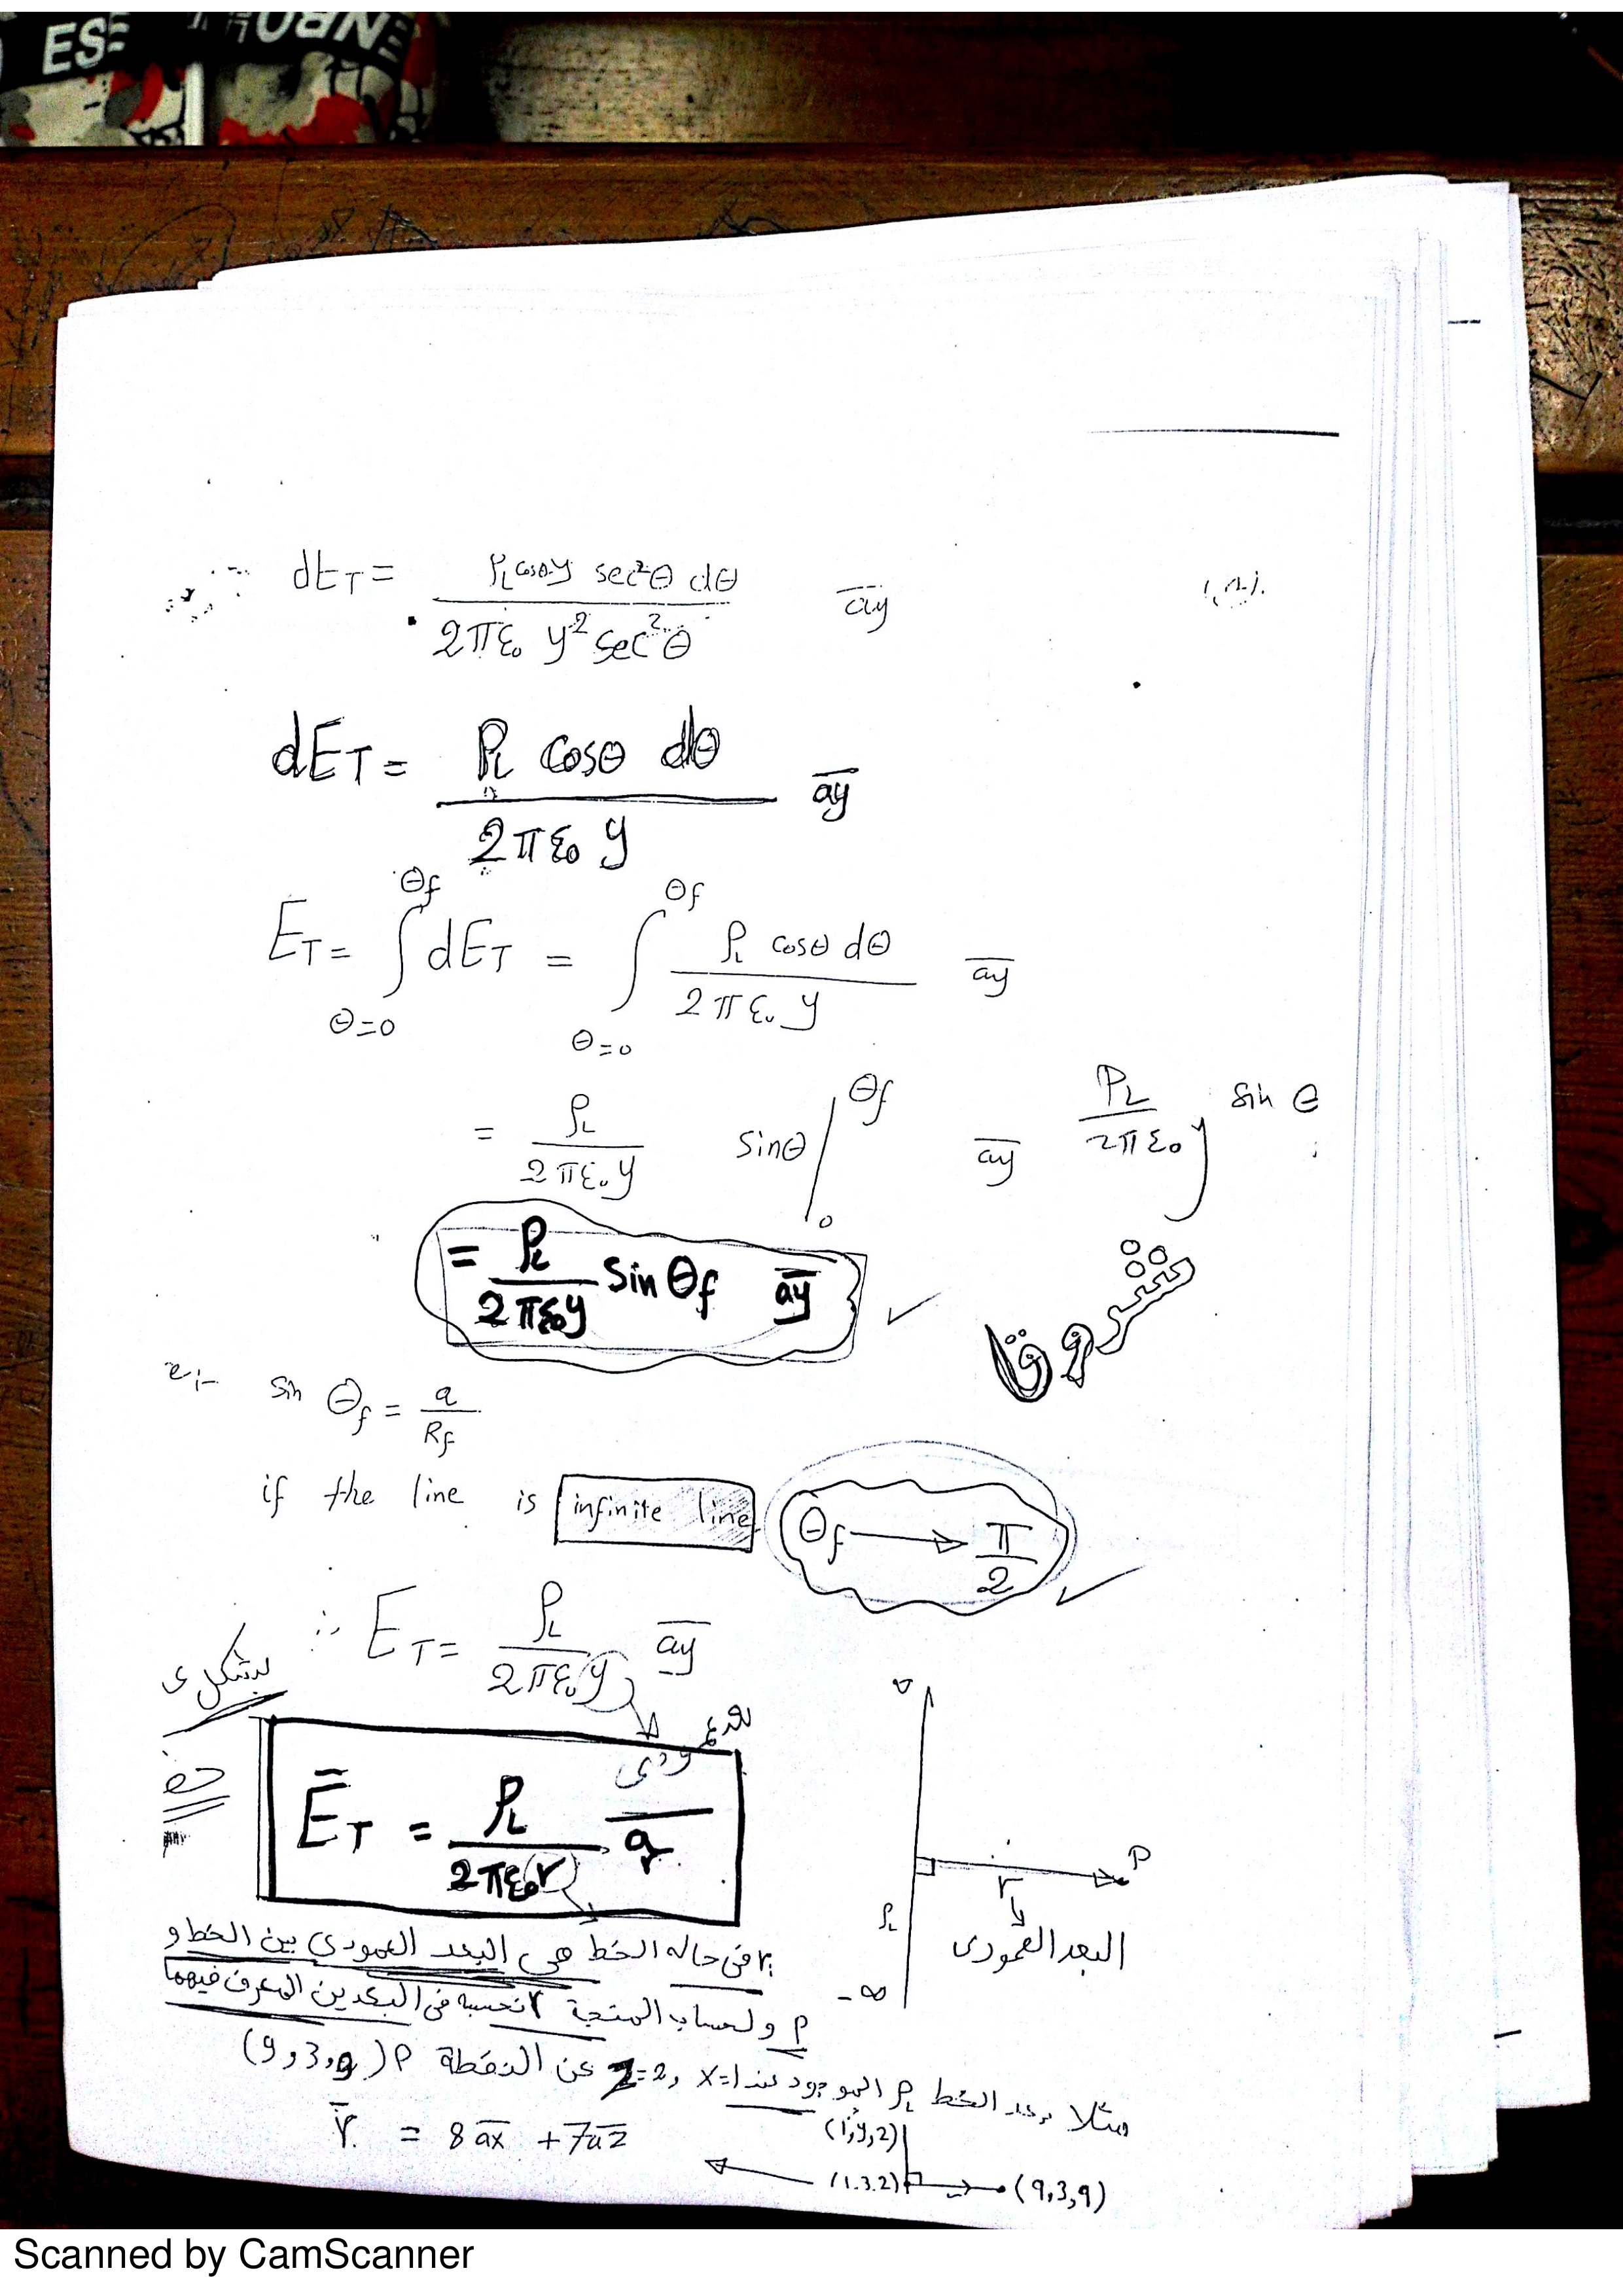 ES
dE_T = ρ_L cosθ y sec²θ dθ / 2πε₀ y² sec²θ  a̅y
dE_T = ρ_L cosθ dθ / 2πε₀ y  a̅y
E_T = ∫_{θ=0}^{θf} dE_T = ∫_{θ=0}^{θf} ρ_L cosθ dθ / 2πε₀ y  a̅y
= ρ_L / 2πε₀ y  sinθ |_0^{θf}  a̅y  ρ_L / 2πε₀ y  sin θ
= ρ_L / 2πε₀ y  sin θf  a̅y
شروق
sin θf = a / Rf
if the line is infinite line  θf → π/2
∴ E_T = ρ_L / 2πε₀ y  a̅y
بشكل
E̅_T = ρ_L / 2πε₀ r  a̅r
P
r
ρ_L
البعد العمودى
- ∞
r: فى حاله الخط هى البعد العمودى بين الخط و
P ولحساب المتجة r نحسبه فى البعدين المعرف فيهما
مثلا بعد الخط ρ_L الموجود عند x=1, z=2 عن النقطة P (9,3,9)
r̅ = 8 a̅x + 7 a̅z
(1,y,2)
(1.3.2)
(9,3,9)
Scanned by CamScanner